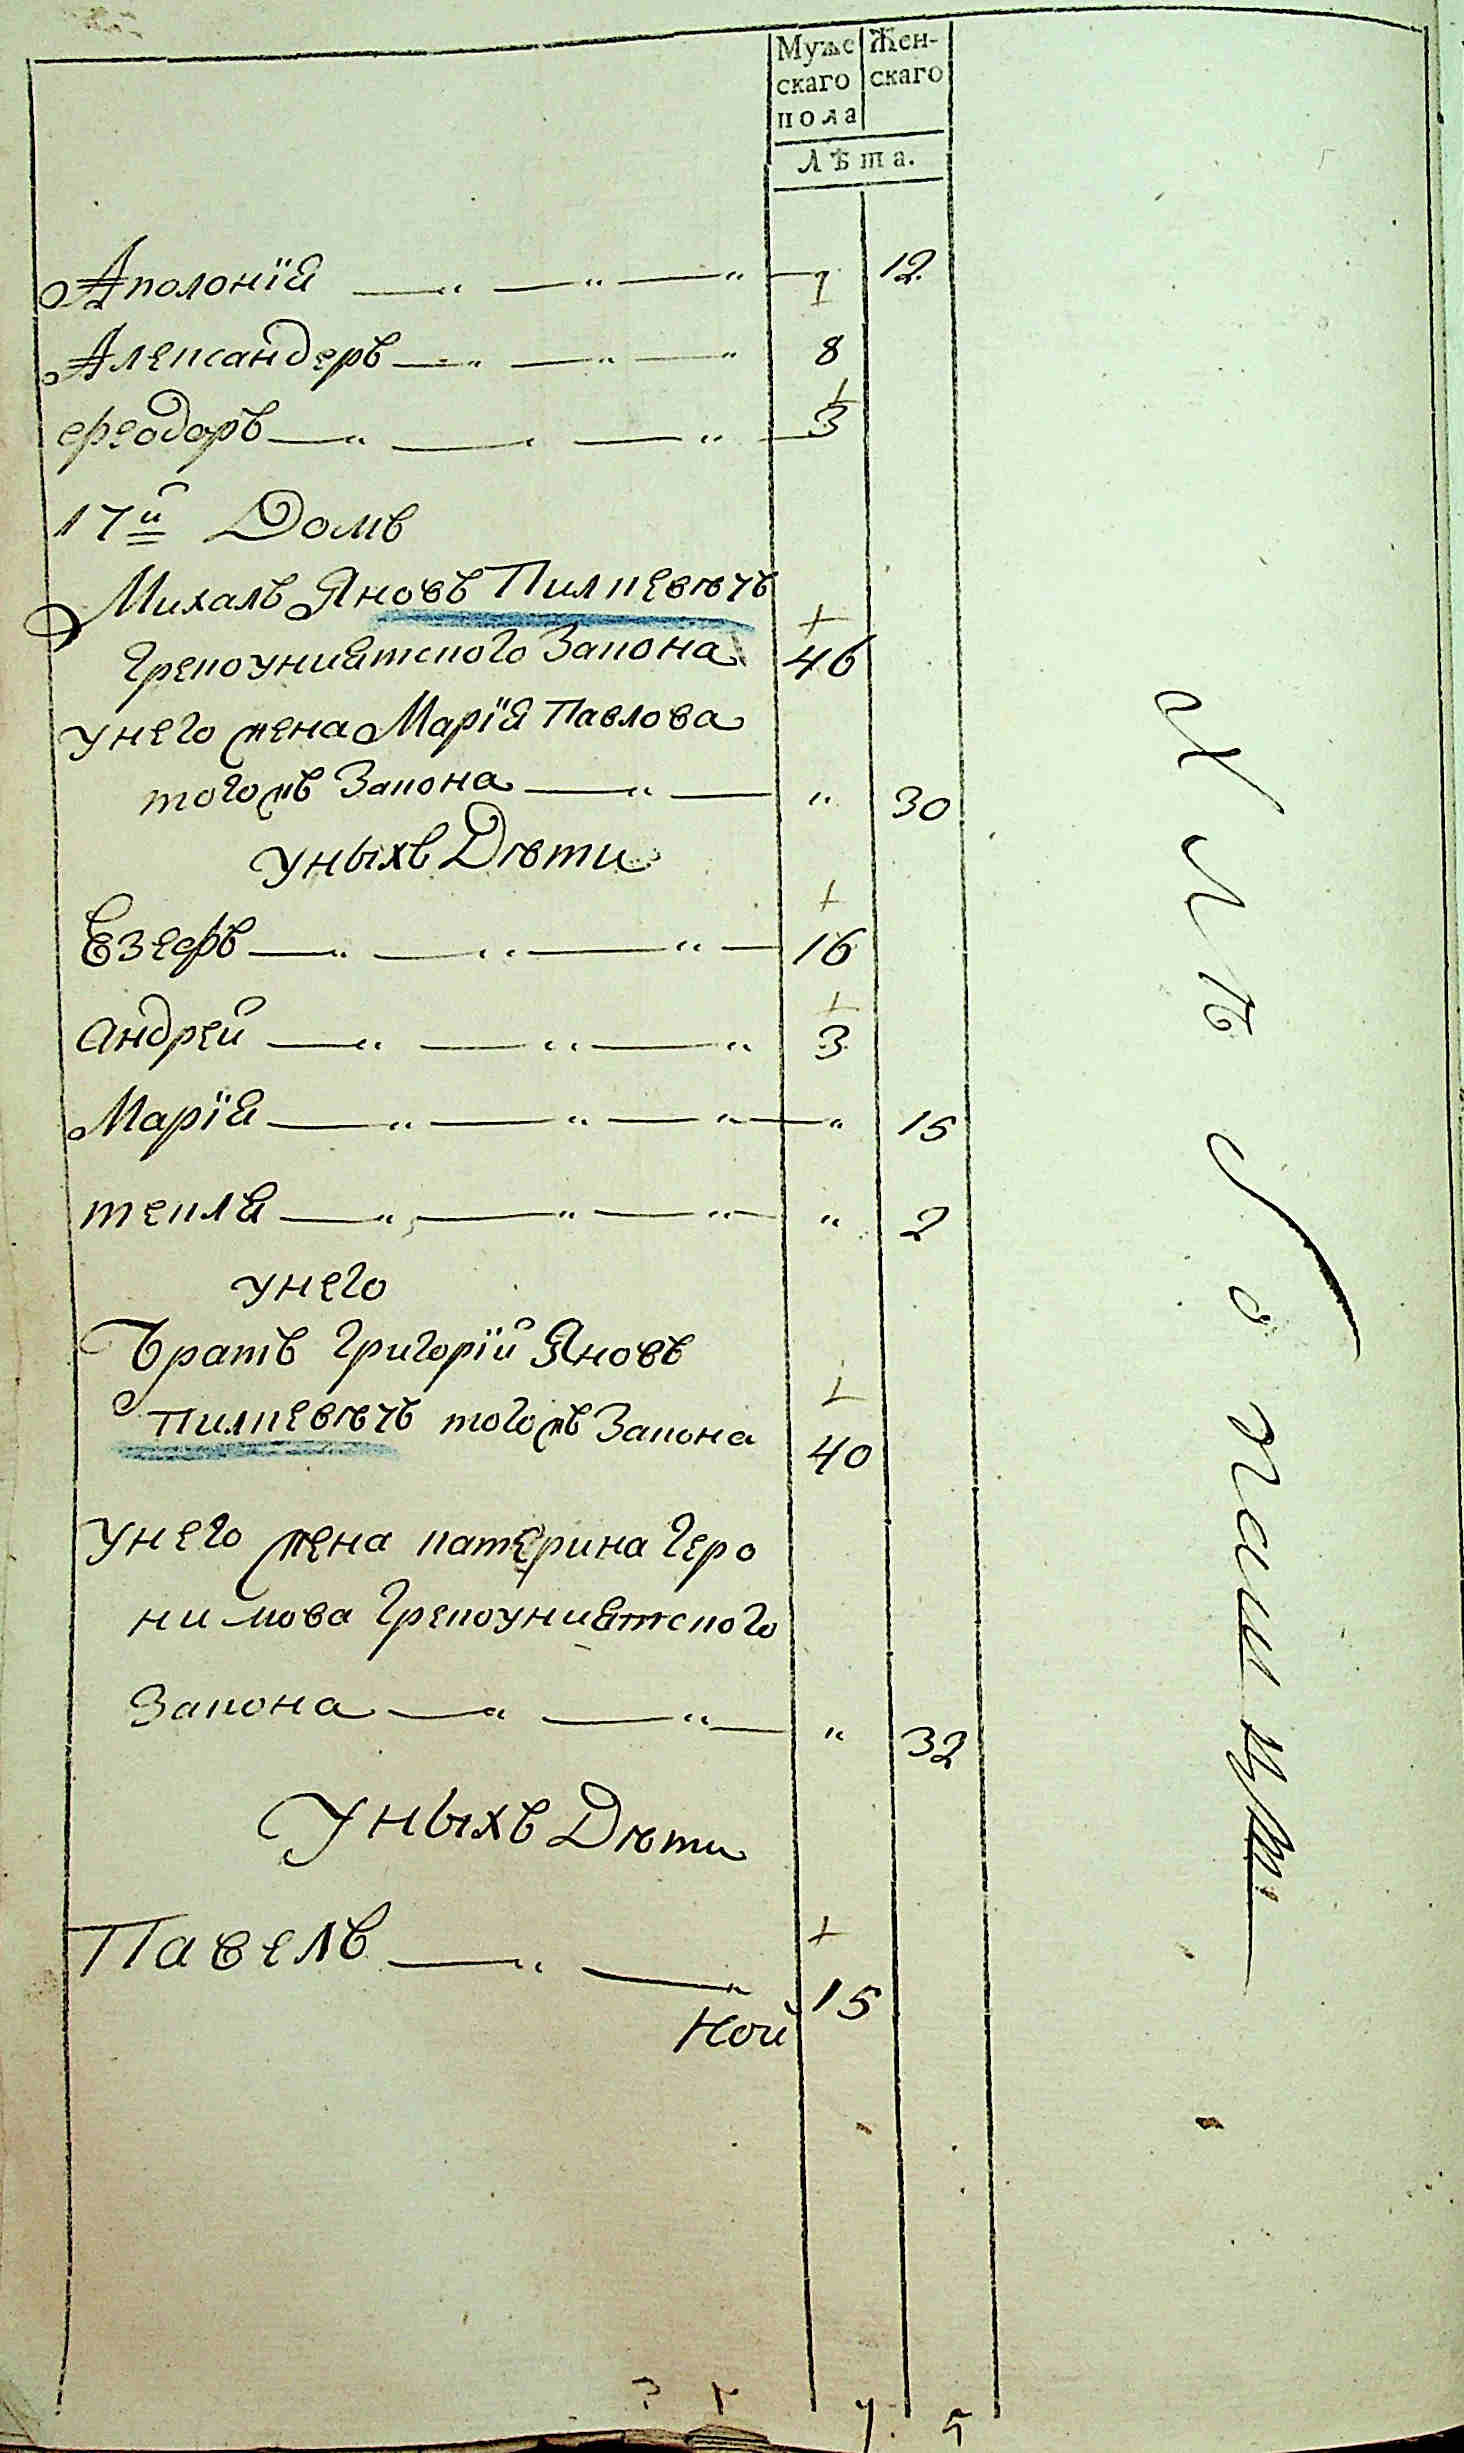 Муже Жен-
скаго скаго
пола
Лѣта.
Аполонія 12
Александеръ 8
Ѳеодоръ 3
17й Домъ
Михалъ Яновъ Пилкевѣчъ
Грекоуниятского Закона 46
унего жена Марія Павлова
тогожъ Закона " 30
уныхъ Дѣти
Езефъ 16
Андрей 3
Марія " 15
текля " 2
унего
Братъ Григорій Яновъ
Пилкевѣчъ тогожъ Закона 40
унего жена катерина Геро
нимова Грекоуниятского
Закона " 32
Уныхъ Дѣти
Павелъ 15
Ной